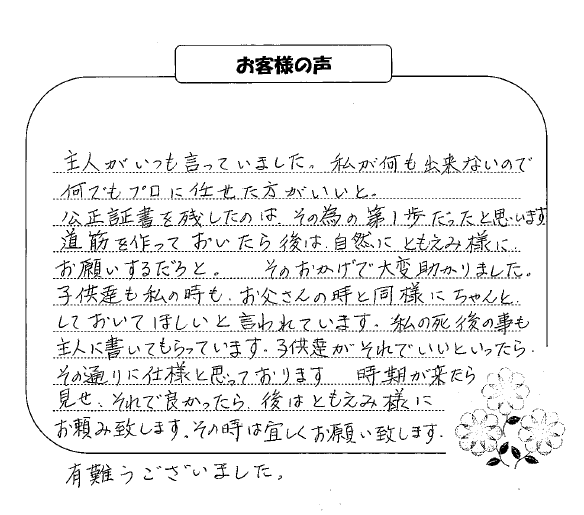 お客様の声
主人がいつも言っていました。私が何も出来ないので
何でもプロに任せた方がいいと。
公正証書を残したのは、その為の第1歩だったと思います
道筋を作っておいたら後は自然にともえみ様に
お願いするだろと。 そのおかげで大変助かりました。
子供達も私の時も、お父さんの時と同様にちゃんと
しておいてほしいと言われています。私の死後の事も
主人に書いてもらっています。子供達がそれでいいといったら、
その通りに仕様と思っております 時期が来たら
見せ、それで良かったら、後はともえみ様に
お頼み致します。その時は宜しくお願い致します。
有難うございました。